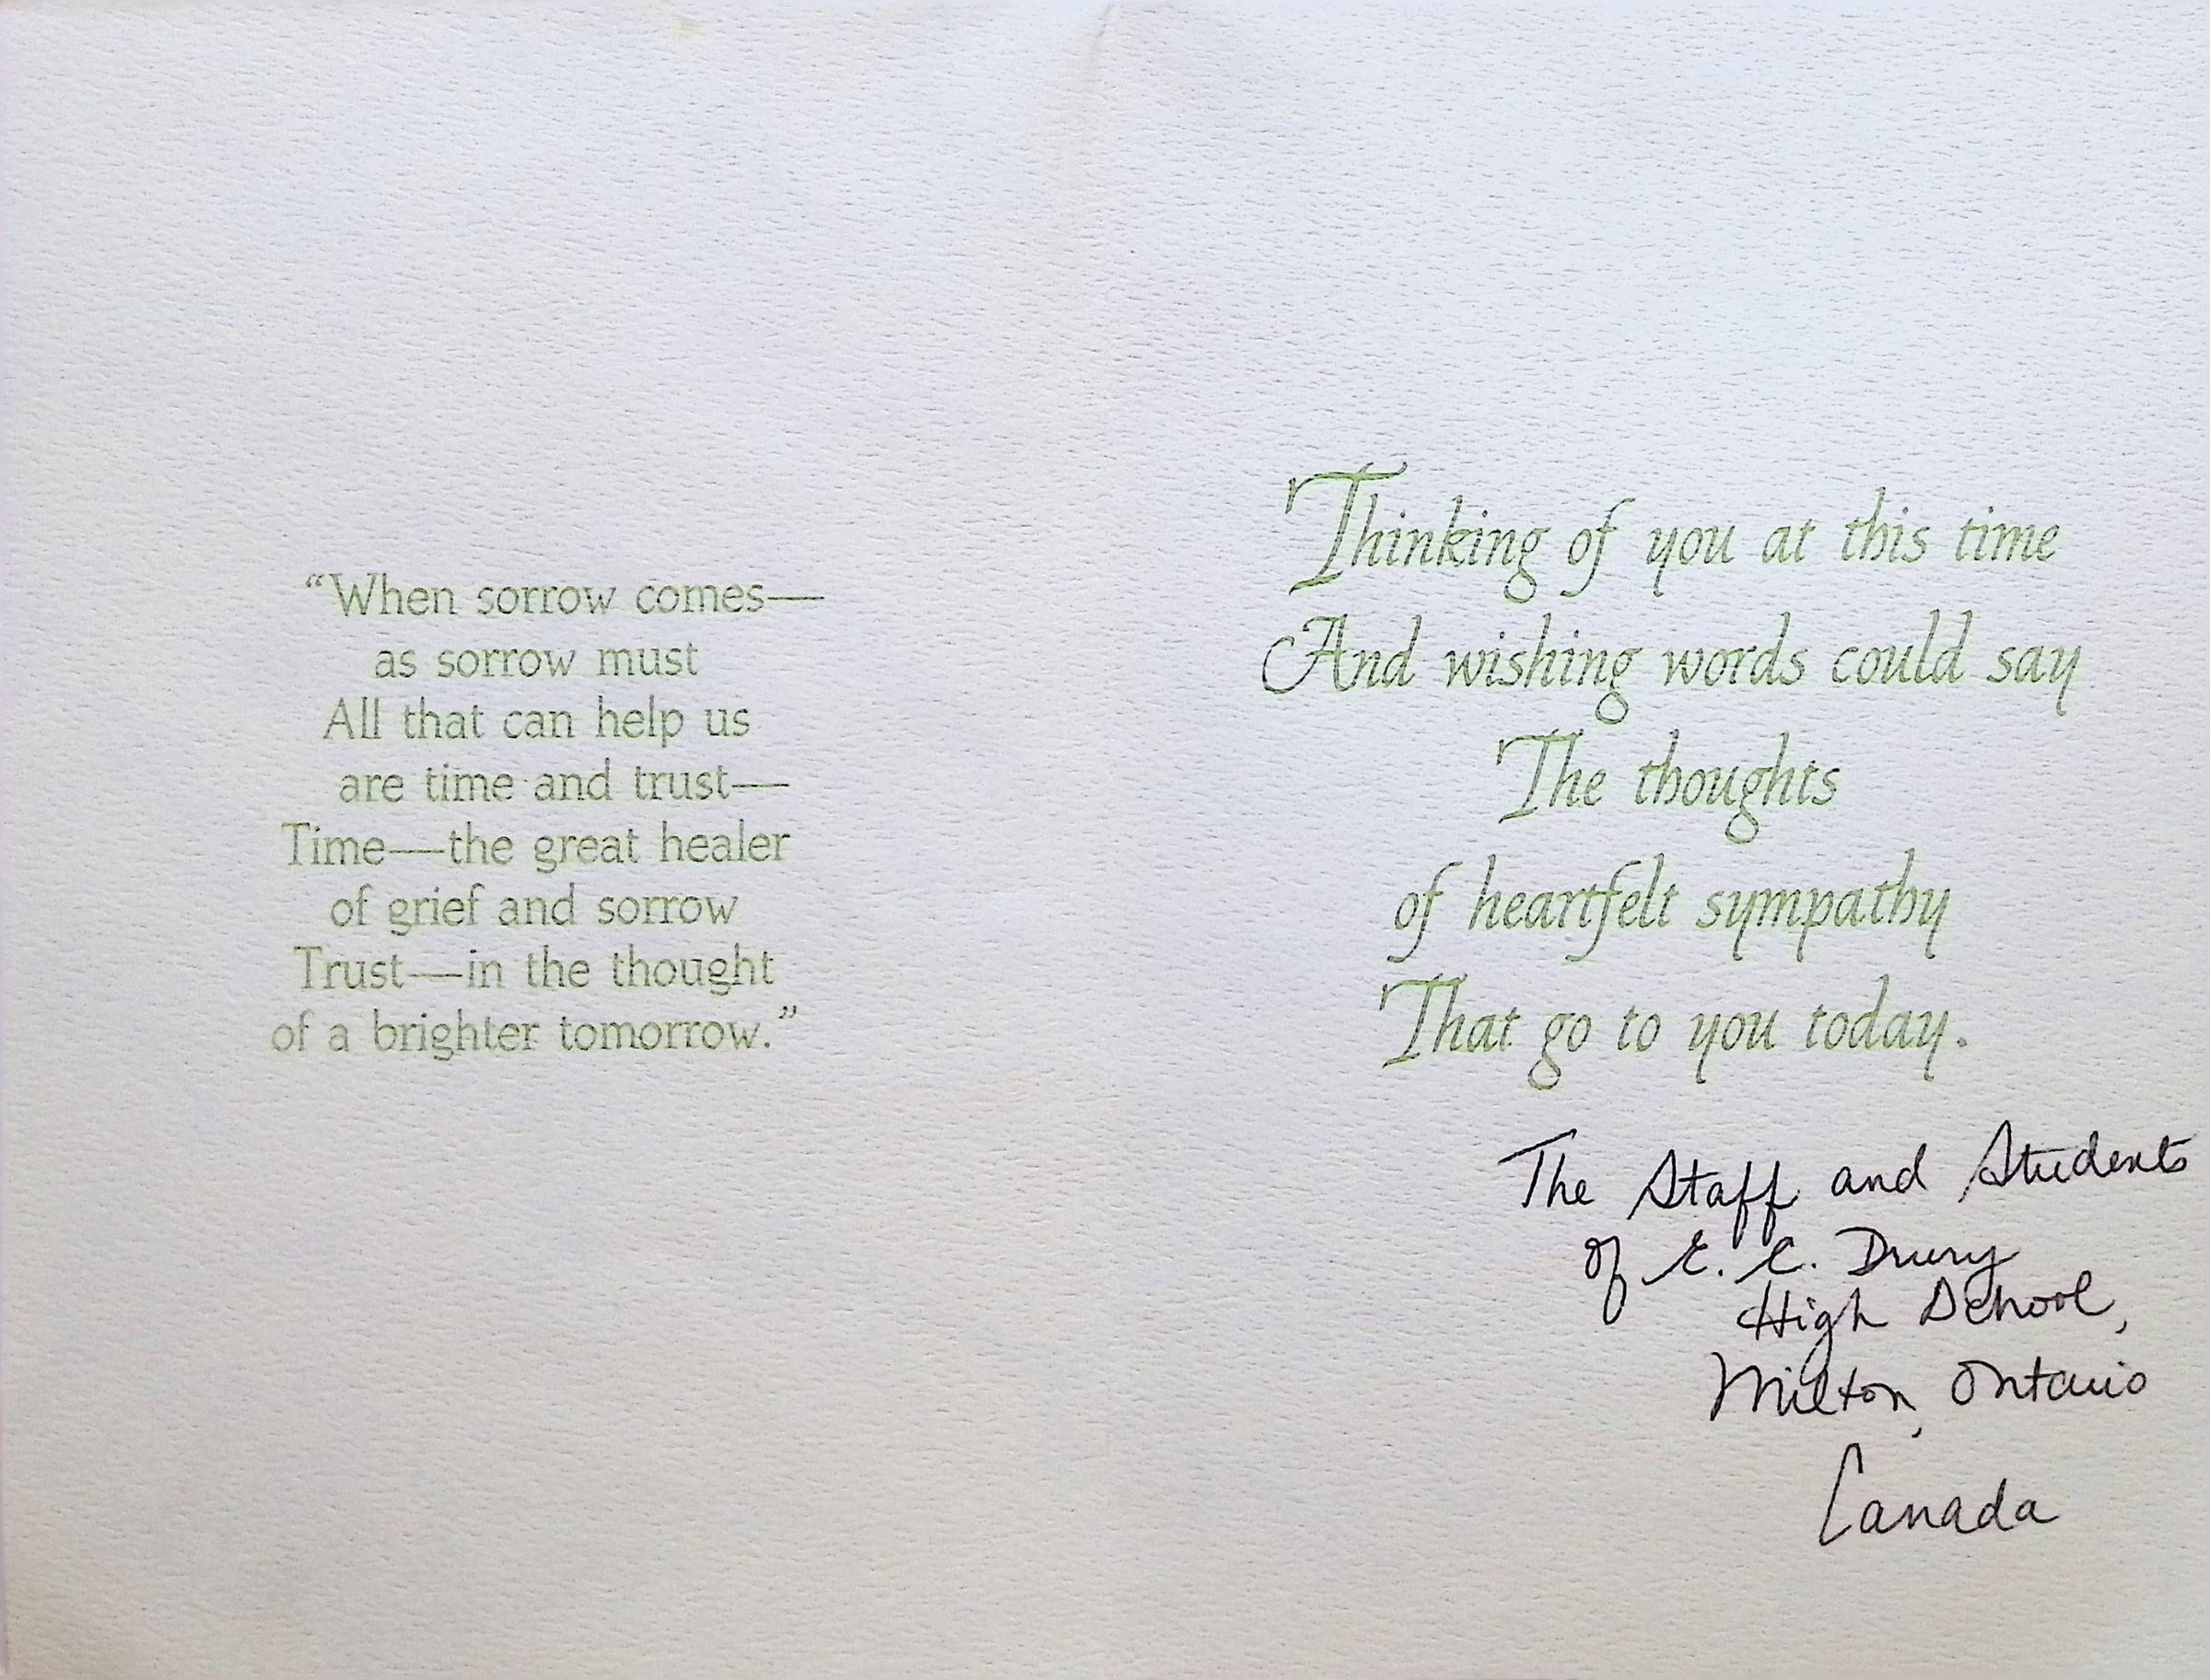 “When sorrow comes—
as sorrow must
All that can help us
are time and trust—
Time—the great healer
of grief and sorrow
Trust—in the thought
of a brighter tomorrow.”
Thinking of you at this time
And wishing words could say
The thoughts
of heartfelt sympathy
That go to you today.
The Staff and Students
of E. C. Drury
High School,
Milton, Ontario
Canada